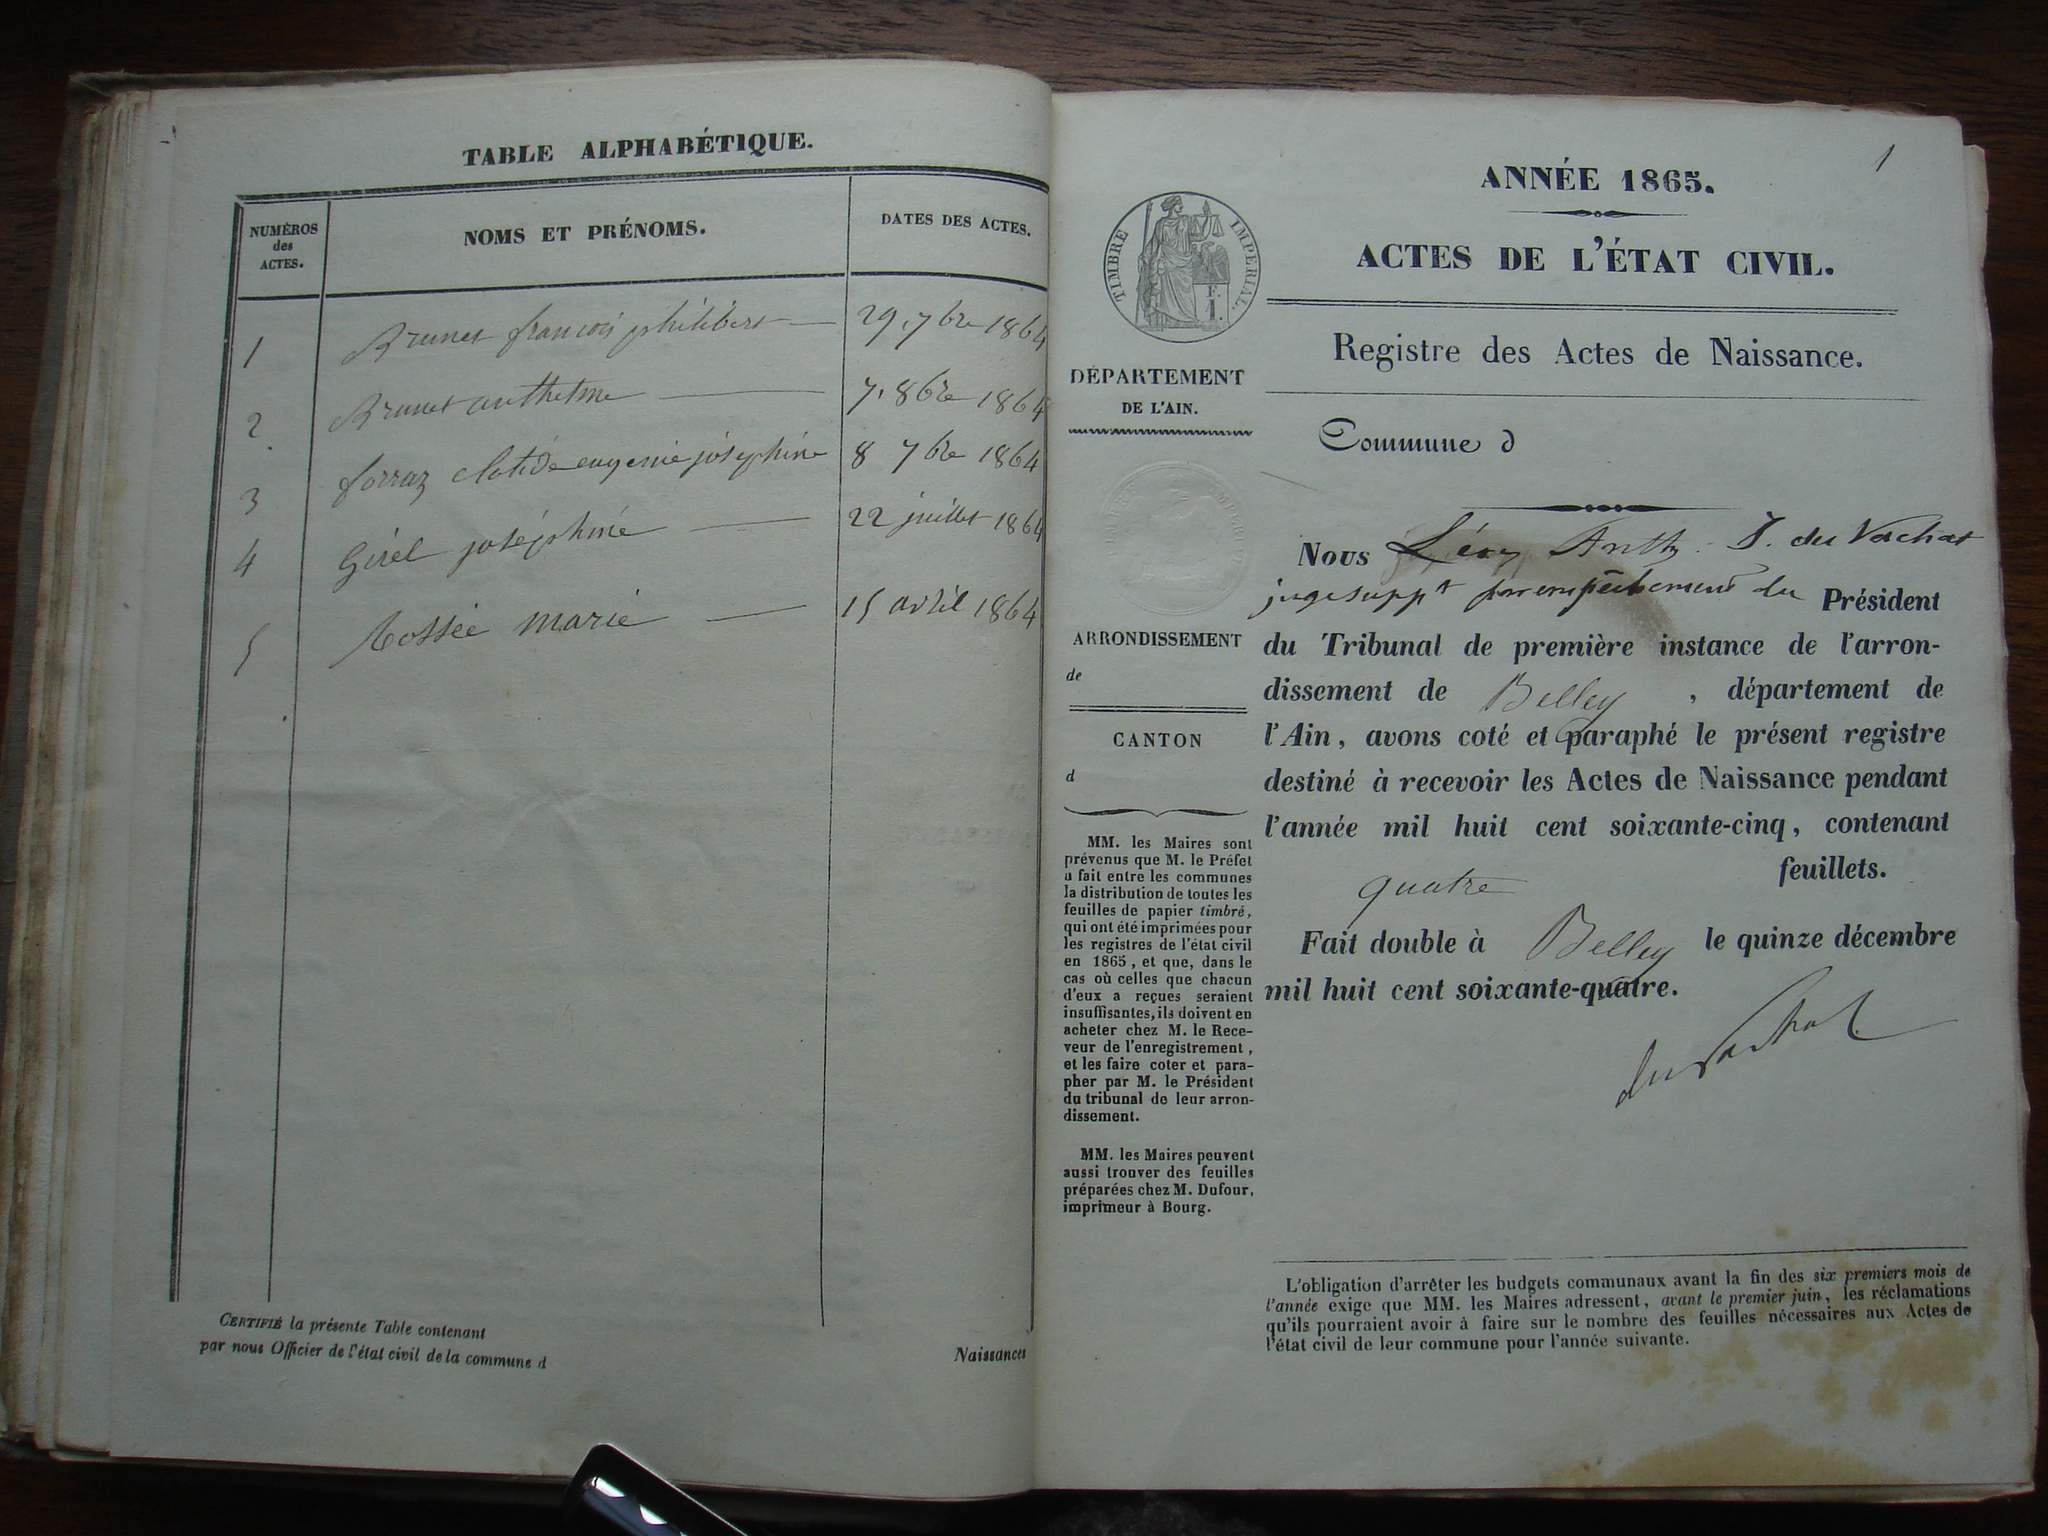 TABLE ALPHABÉTIQUE.
NUMÉROS des ACTES. NOMS ET PRÉNOMS. DATES DES ACTES.
1 Brunet françois philibert 29. 7bre 1864
2 Brunet anthelme 7. 8bre 1864
3 forraz clotide eugenie joséphine 8 7bre 1864
4 Girel joséphine 22 juillet 1864
5 marie 15 avril 1864
CERTIFIÉ la présente Table contenant Naissances
par nous Officier de l'état civil de la commune d
1
ANNÉE 1865.
ACTES DE L'ÉTAT CIVIL.
Registre des Actes de Naissance.
TIMBRE IMPÉRIAL.
F.
1.
DÉPARTEMENT
DE L'AIN.
ARRONDISSEMENT
de
CANTON
d
MM. les Maires sont
prévenus que M. le Préfet
a fait entre les communes
la distribution de toutes les
feuilles de papier timbré,
qui ont été imprimées pour
les registres de l'état civil
en 1865, et que, dans le
cas où celles que chacun
d'eux a reçues seraient
insuffisantes, ils doivent en
acheter chez M. le Rece-
veur de l'enregistrement,
et les faire coter et para-
pher par M. le Président
du tribunal de leur arron-
dissement.
MM. les Maires peuvent
aussi trouver des feuilles
préparées chez M. Dufour,
imprimeur à Bourg.
Commune d
Nous du Vachat
juge suppt par empêchement du Président
du Tribunal de première instance de l'arron-
dissement de Belley, département de
l'Ain, avons coté et paraphé le présent registre
destiné à recevoir les Actes de Naissance pendant
l'année mil huit cent soixante-cinq, contenant
quatre feuillets.
Fait double à Belley le quinze décembre
mil huit cent soixante-quatre.
du Vachat
L'obligation d'arrêter les budgets communaux avant la fin des six premiers mois de
l'année exige que MM. les Maires adressent, avant le premier juin, les réclamations
qu'ils pourraient avoir à faire sur le nombre des feuilles nécessaires aux Actes de
l'état civil de leur commune pour l'année suivante.